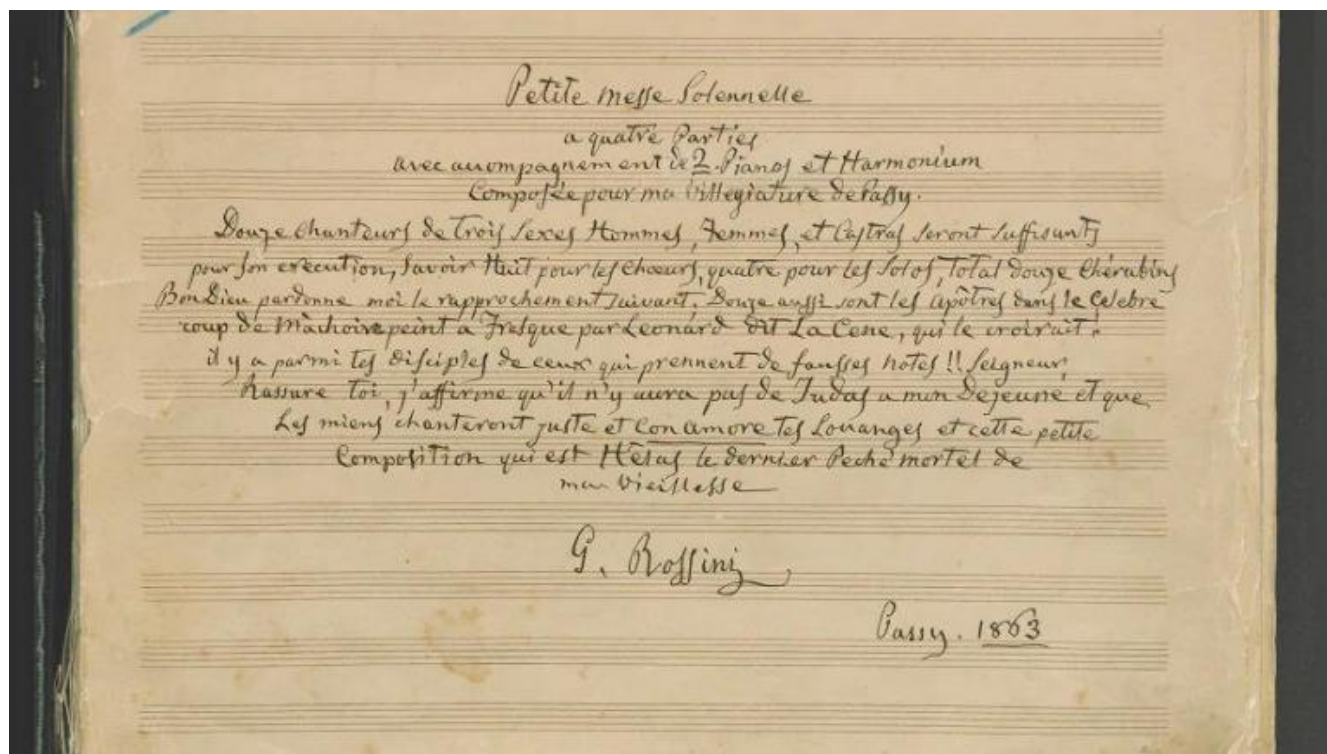 Petite messe Solennelle
a quatre Parties
avec accompagnement de 2 Pianos et Harmonium
Composée pour ma villegiature de Passy.
Douze chanteurs de trois Sexes Hommes, Femmes, et Castras seront suffisants
pour son execution, Savoir Huit pour les chœurs, quatre pour les Solos, Total douze Chérubins
Bon Dieu pardonne moi le rapprochement suivant, Douze aussi sont les Apôtres dans le Celebre
coup de Mâchoire peint a Fresque par Leonard dit La Cene, qui le croirait!
il y a parmi tes disciples de ceux qui prennent de fausses notes!! Seigneur,
Rassure toi, j'affirme qu'il n'y aura pas de Judas a mon Dejeuné et que
Les miens chanteront juste et Con amore tes Louanges et cette petite
Composition qui est Hélas le dernier Peché mortel de
ma vieillesse
G. Rossini
Passy. 1863